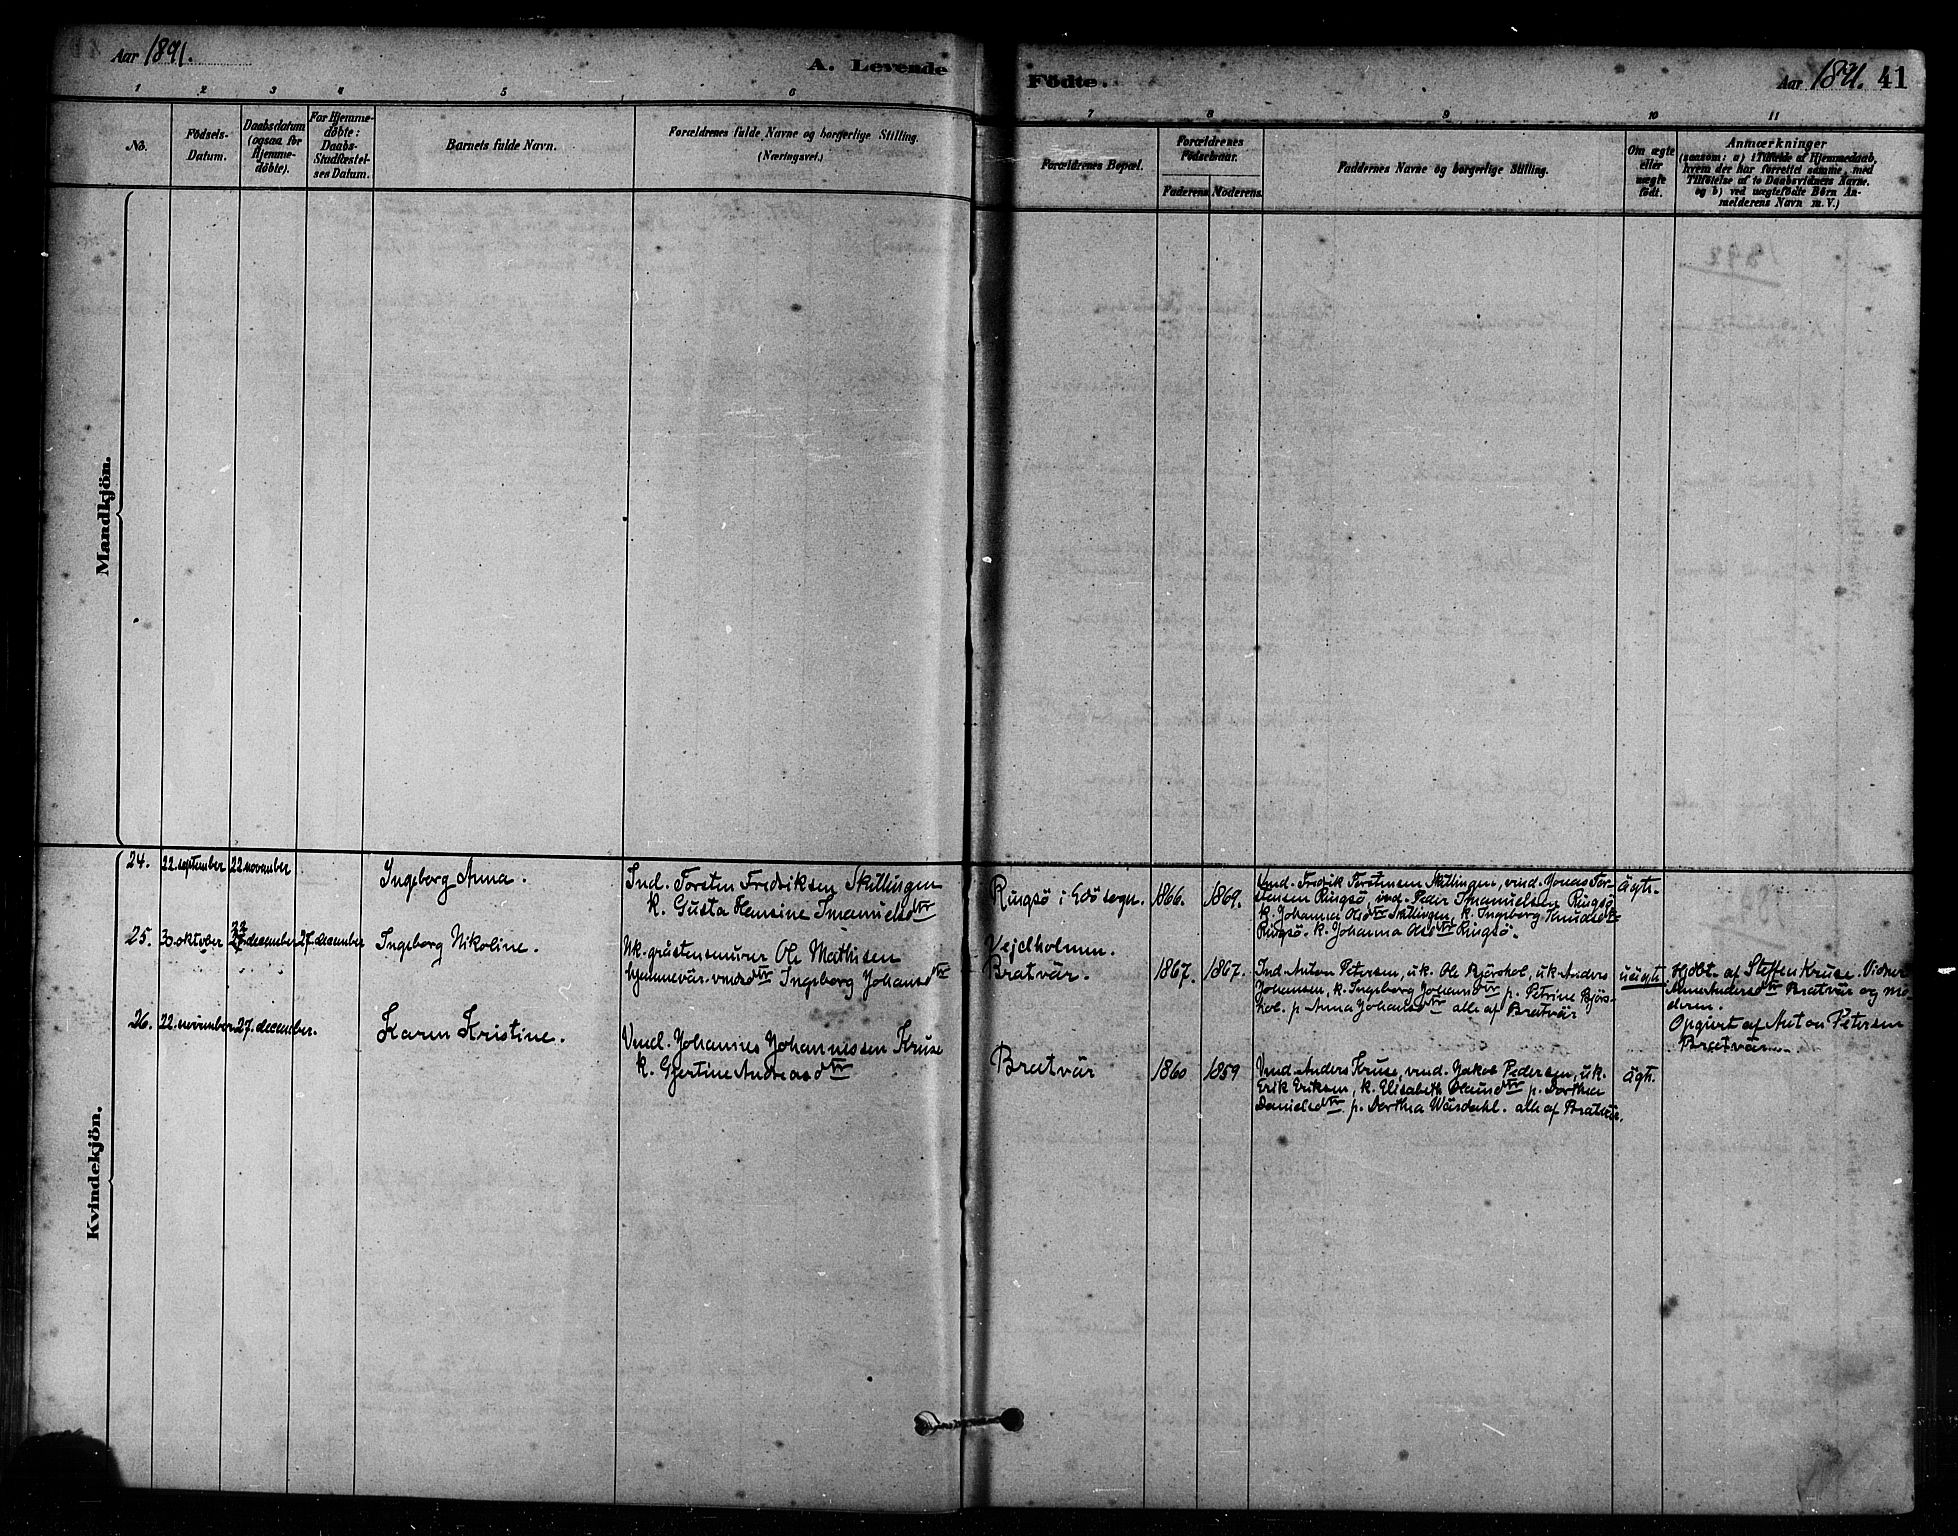 Aar 1891.
A. Levende
Födte.
Aar 1891.
41
1 2 3 4 5 6 7 8 9 10 11
No.
Födsels-
Datum.
Daabsdatum
(ogsaa for
Hjemme-
döbte).
For Hjemme-
döbte:
Daabs-
Stadfæstel-
ses Datum.
Barnets fulde Navn.
Forældrenes fulde Navne og borgerlige Stilling.
(Næringsvei.)
Forældrenes Bopæl.
Forældrenes
Födselsaar.
Faderens. Moderens.
Faddernes Navne og borgerlige Stilling.
Om ægte
eller
uægte
födt.
Anmærkninger
(saasom: a) i Tilfælde af Hjemmedaab,
hvem der har forrettet samme, med
Tilföielse af to Daabsvidners Navne.
og b) ved uægtefödte Börn An-
melderens Navn m. V.)
Mandkjön.
Kvindekjön.
24.
22 september
22 november
Ingeborg Anna.
Ind. Torsten Fredriksen Skillingen
k. Gusta Hansine Imanuelsdtr
Ringsö i Edö sogn.
1866.
1869.
Vmd. Fredrik Torstensen Skillingen, vmd. Jonas Tor-
stensen Ringsö, vmd. Peder Imanuelsen Ringsö
k. Johanna Olsdtr Skillingen, k. Ingeborg Knudsdtr
Ringsö. k. Johanna Olsdtr Ringsö.
ägte.
25.
30 oktober
27 december
27. december
Ingeborg Nikoline.
Uk. gråstensmurer Ole Mathisen
hjemmevär. vmdsdtr Ingeborg Johansdtr
Vejelholmen.
Bratvär.
1867.
1867.
Ind. Anton Petersen, u.k. Ole Björshol, u.k. Anders
Johansen, k. Ingeborg Johansdtr p. Petrine Björs-
hol. p. Anna Johansdtr alle af Bratvär
uägte.
Hjdbt. af Steffen Kruse. Vidner
Andersdtr Bratvär og mo-
deren.
Opgivet af Anton Petersen
Bratvär.
26.
22. november
27. december.
Karen Kristine.
Vmd. Johannes Johannessen Kruse
k. Gjertine Andreasdtr
Bratvär
1860
1859
Vmd. Anders Kruse, vmd. Jakob Pedersen, u.k.
Erik Eriksen, k. Elisabeth Olausdtr p. Dorthea
Danielsdtr, p. Dorthea Wårsdahl. alle af Bratvär.
ägte.